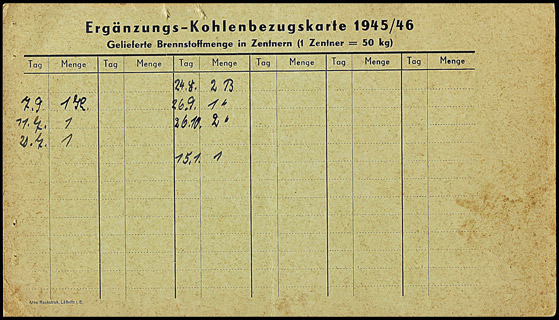 Ergänzungs-Kohlenbezugskarte 1945/46
Gelieferte Brennstoffmenge in Zentnern (1 Zentner = 50 kg)
Tag Menge Tag Menge Tag Menge Tag Menge Tag Menge Tag Menge
24.8. 2 B
7.9. 1 26.9. 1 "
1 26.10. 2 "
1
15.1. 1